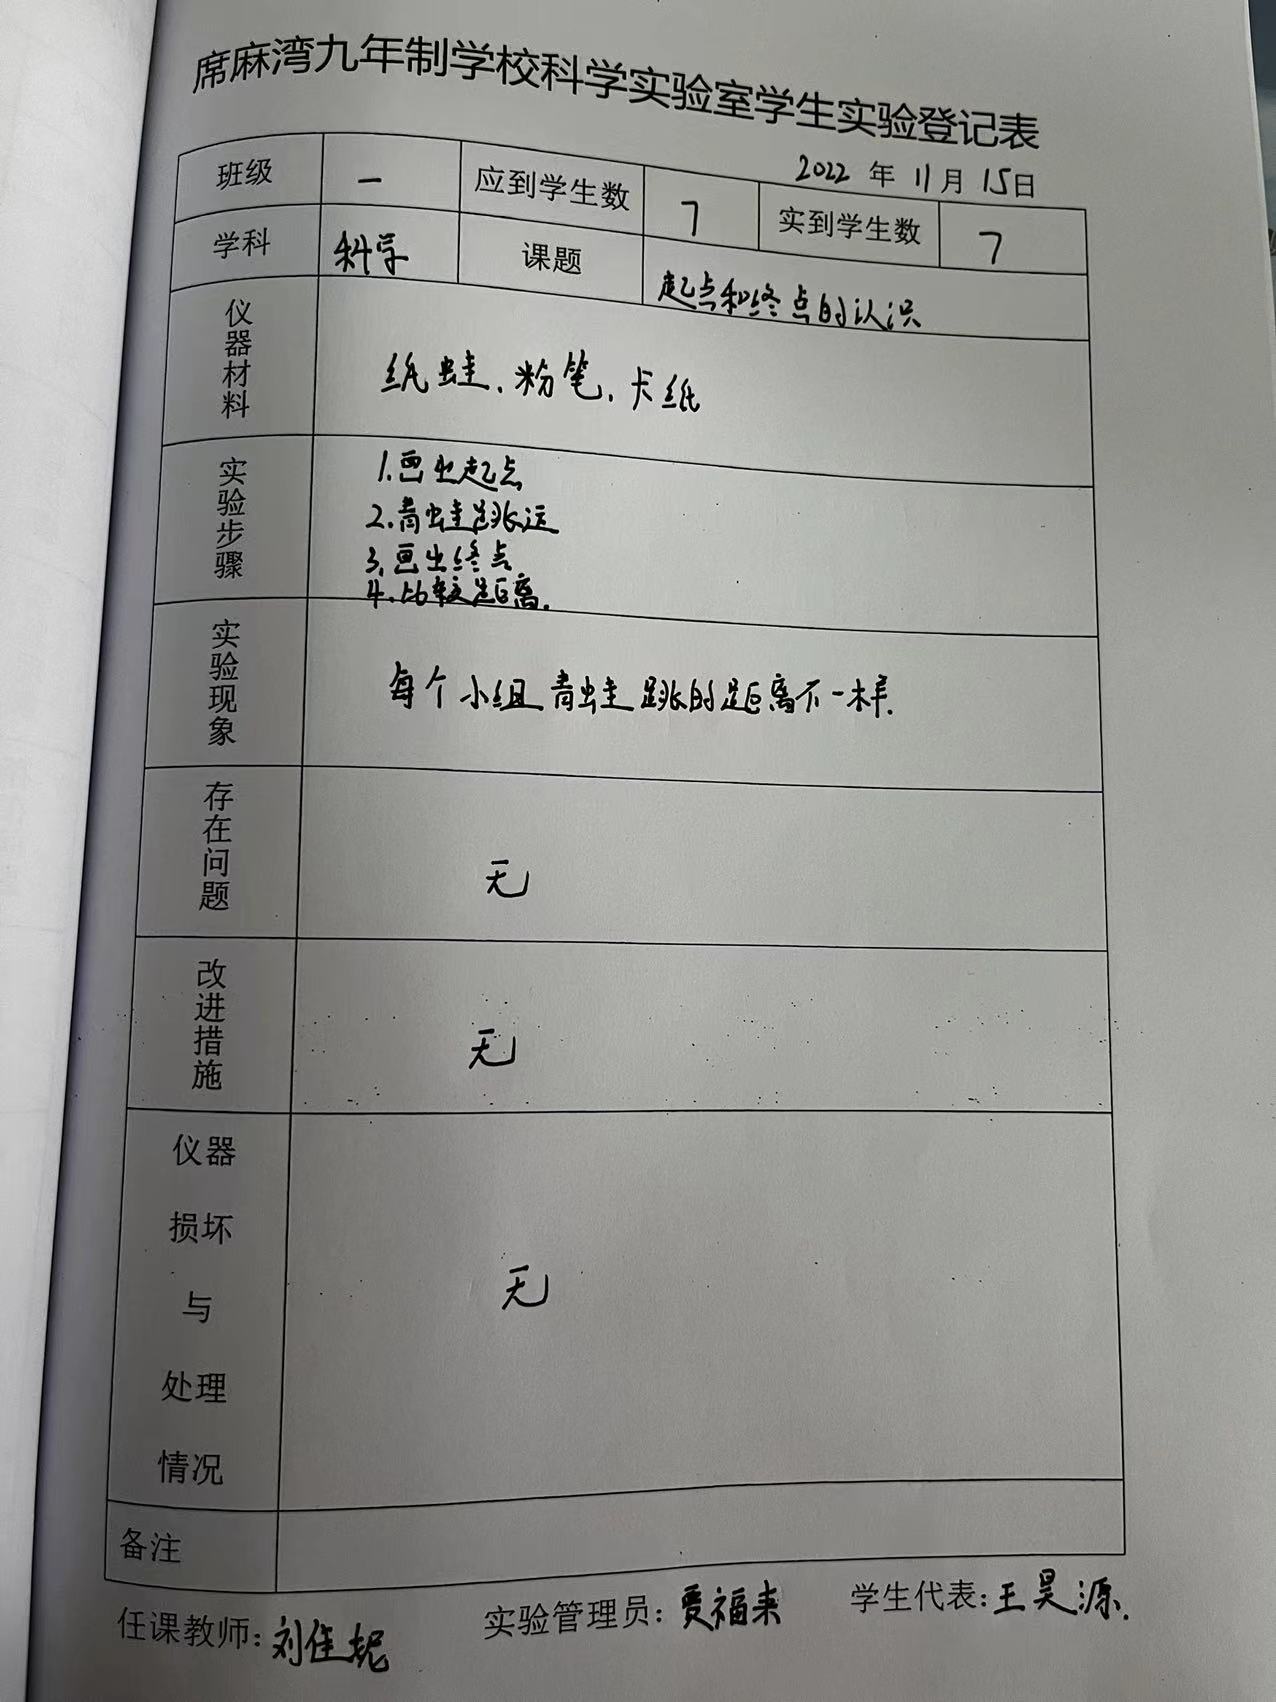 席麻湾九年制学校科学实验室学生实验登记表
2022 年 11月 15日
班级 一 应到学生数 7 实到学生数 7
学科 科学 课题 起点和终点的认识
仪器材料 纸蛙、粉笔、卡纸
实验步骤 1.画出起点
2.青蛙跳远
3.画出终点
4.比较距离.
实验现象 每个小组青蛙跳的距离不一样.
存在问题 无
改进措施 无
仪器
损坏
与
处理
情况
无
备注
任课教师:刘佳妮 实验管理员:贾福来 学生代表:王昊源.